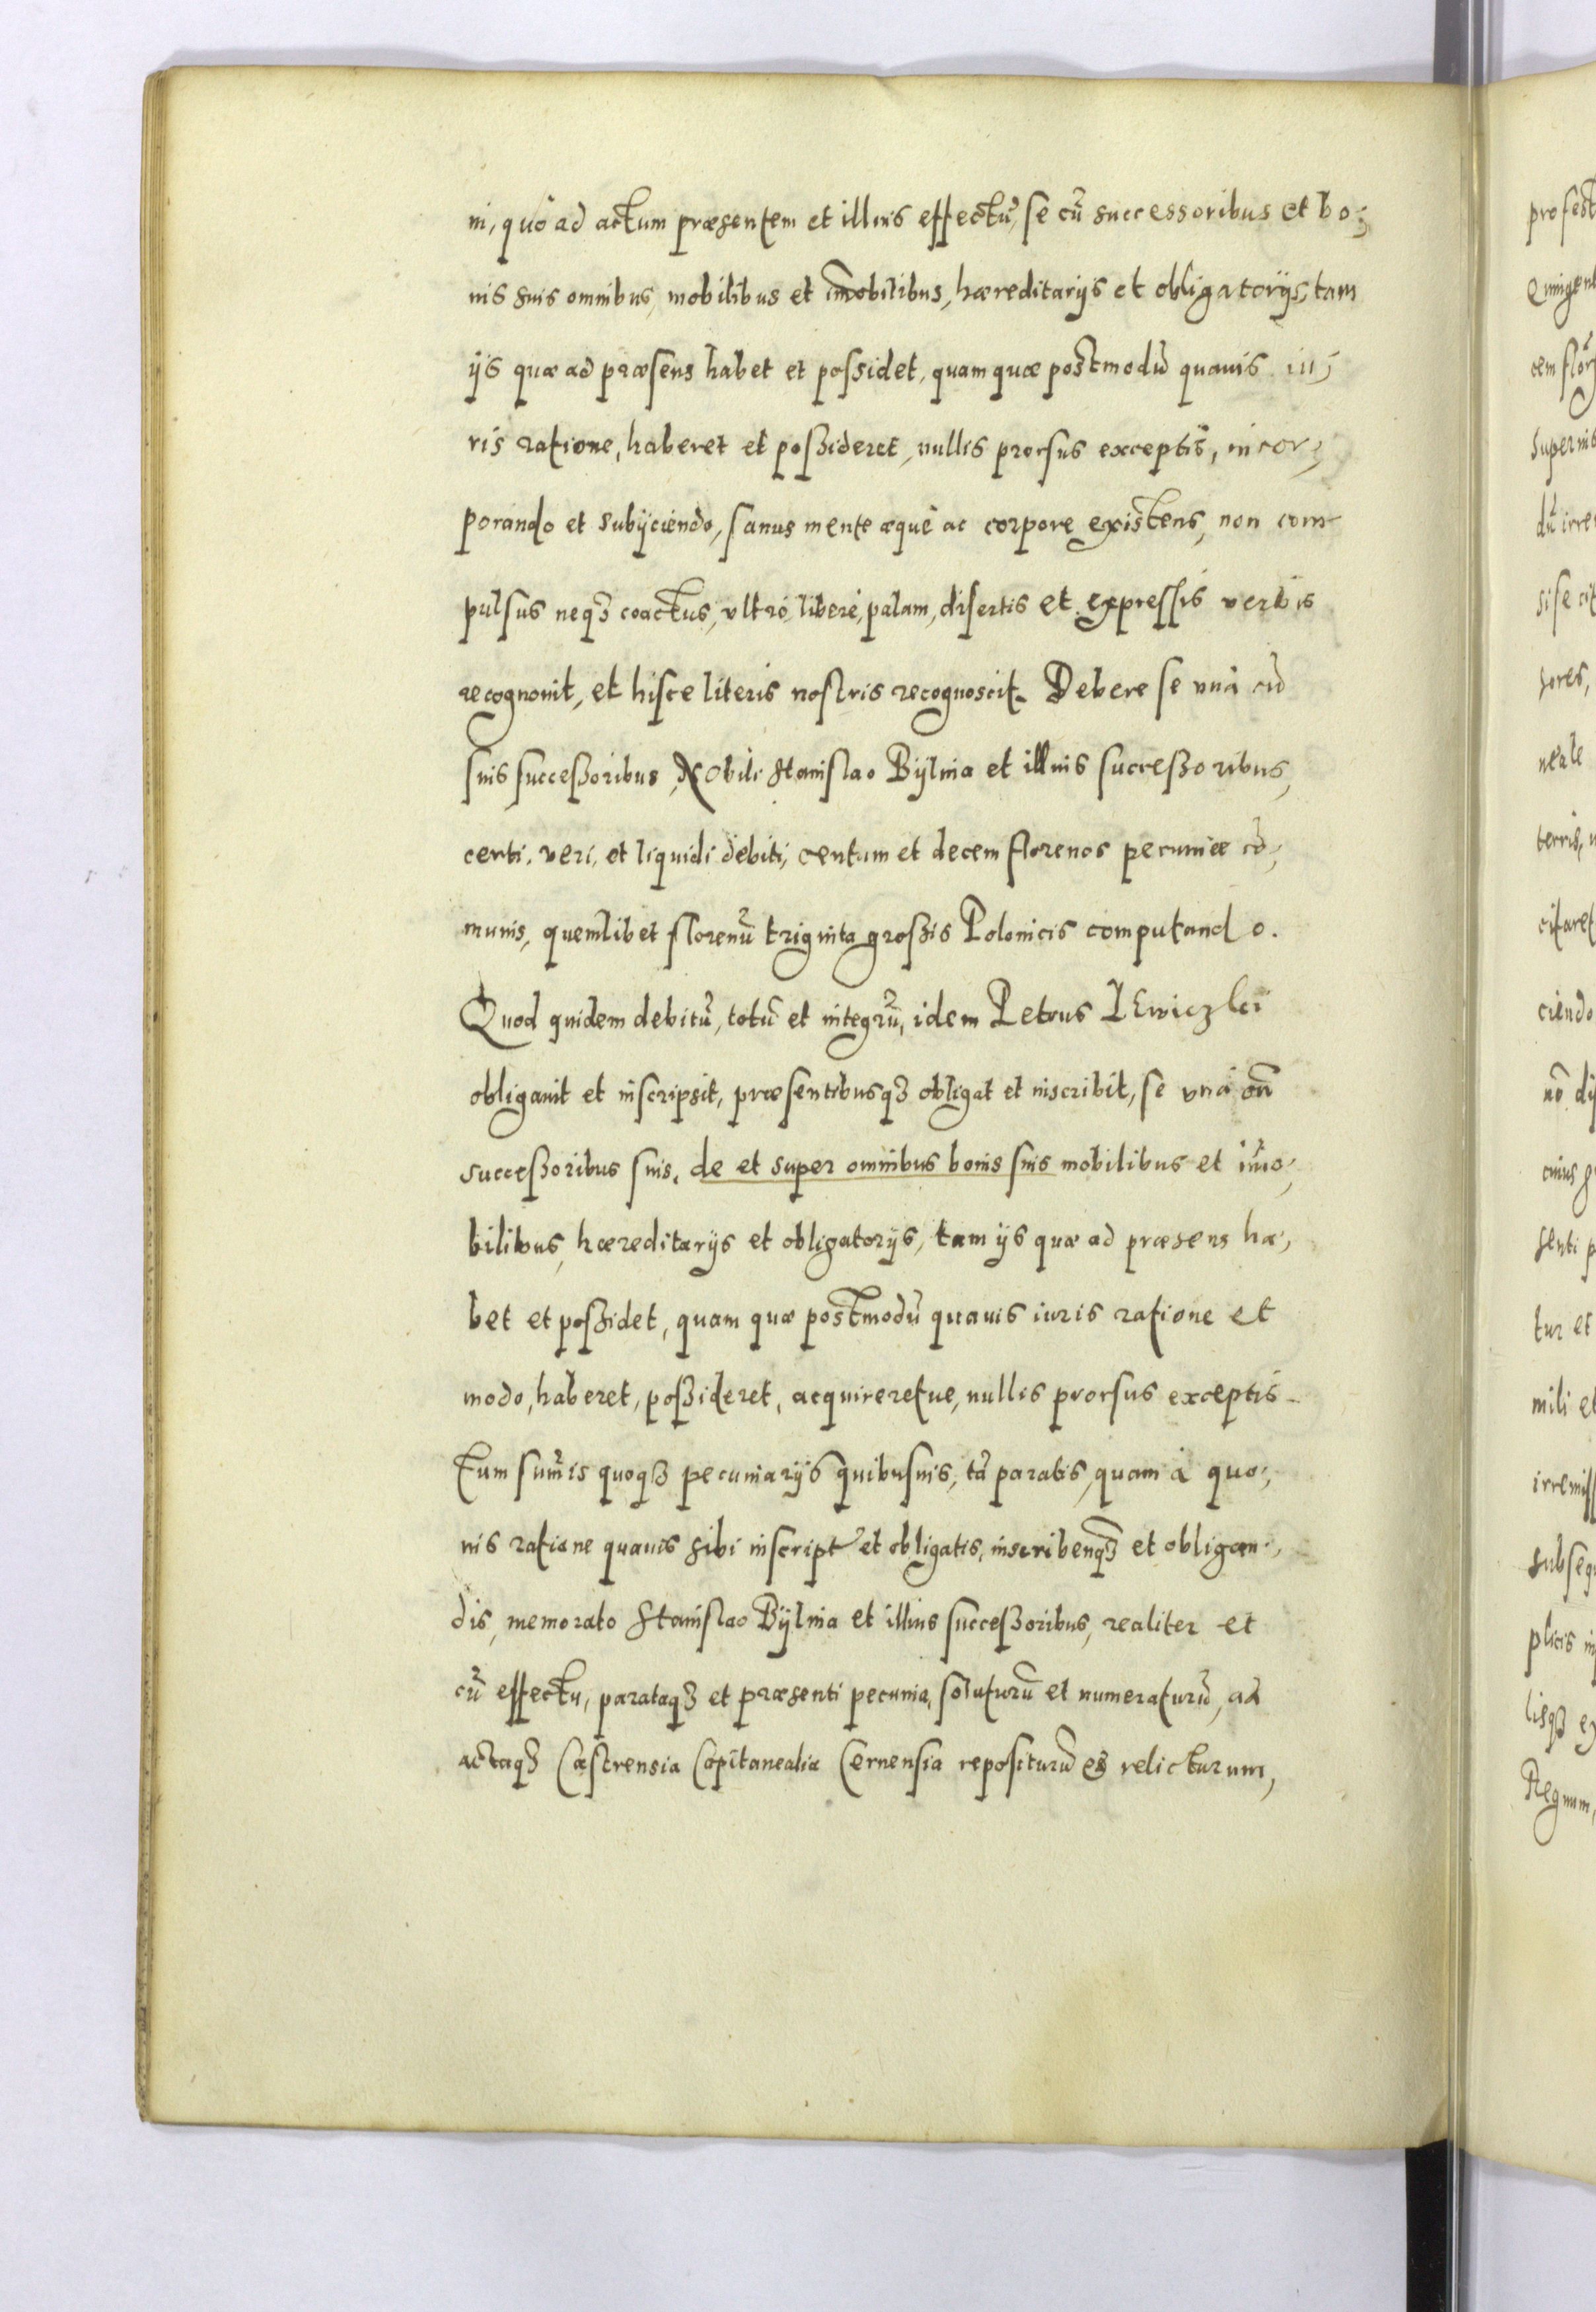 ni, quò ad actum præsentem et illius effectũ, se cũ successoribus et bo;
nis suis omnibus, mobilibus et im̃obilibus, hæreditarijs et obligatorijs, tam
ijs quæ ad præsens habet et possidet, quam quæ postmodũ quauis iu;
ris ratione, haberet et poßideret, nullis prorsus exceptis, incor;
porando et subijciendo, sanus mente æquè ac corpore existens, non com
pulsus neqȝ coactus, vltrò, liberè, palam, disertis et expressis verbis
recognouit, et hisce literis nostris recognoscit. Debere se vnà cũ
suis succeßoribus, Nobili Stanislao Bÿlina et illius succeßoribus,
certi, veri, et liquidi debiti, centum et decem florenos pecuniæ cõ;
munis, quemlibet florenũ triginta großis Polonicis computando.
Quod quidem debitũ, totũ et integrũ, idem Petrus
obligauit et inscripsit, præsentibusqȝ obligat et inscribit, se vnà cũ
succeßoribus suis, de et super omnibus bonis suis mobilibus et im̃o;
bilibus, hæreditarijs et obligatorijs, tam ijs quæ ad præsens ha;
bet et poßidet, quam quæ postmodũ quauis iuris ratione et
modo, haberet, poßideret, acquireretue, nullis prorsus exceptis
Tum sum̃is quoqȝ pecuniarijs quibusuis, tã paratis, quam à quo;
uis ratione quauis sibi inscript et obligatis, inscribenqȝ et obligan;
dis, memorato Stanislao Bÿlina et illius succeßoribus, realiter et
cũ effectu, parataqȝ et præsenti pecunia, soluturũ et numeraturũ, ad
actaqȝ Castrensia Capitanealia Cernensia repositurũ et relicturum,